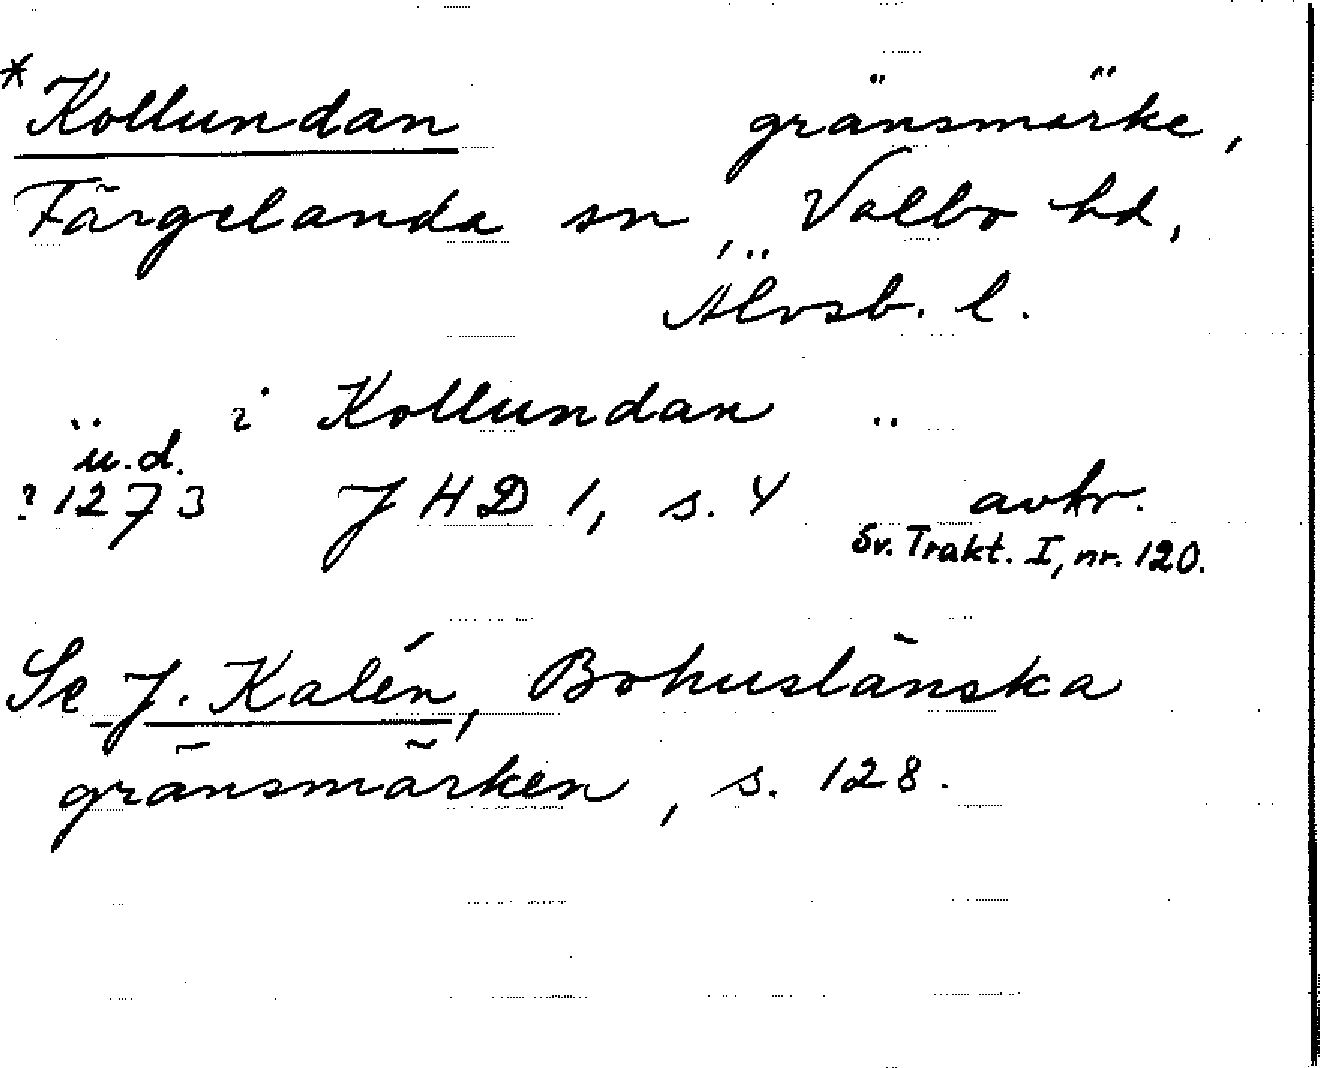 *Kollundan gränsmärke,
Färgelanda sn, Valbo hd,
Älvsb. l.
.. i Kollundan ..
u.d.
?1273 JHD 1, s. 4 avkr.
Sv. Trakt. I, nr. 120.
Se J. Kalén, Bohuslänska
gränsmärken, s. 128.